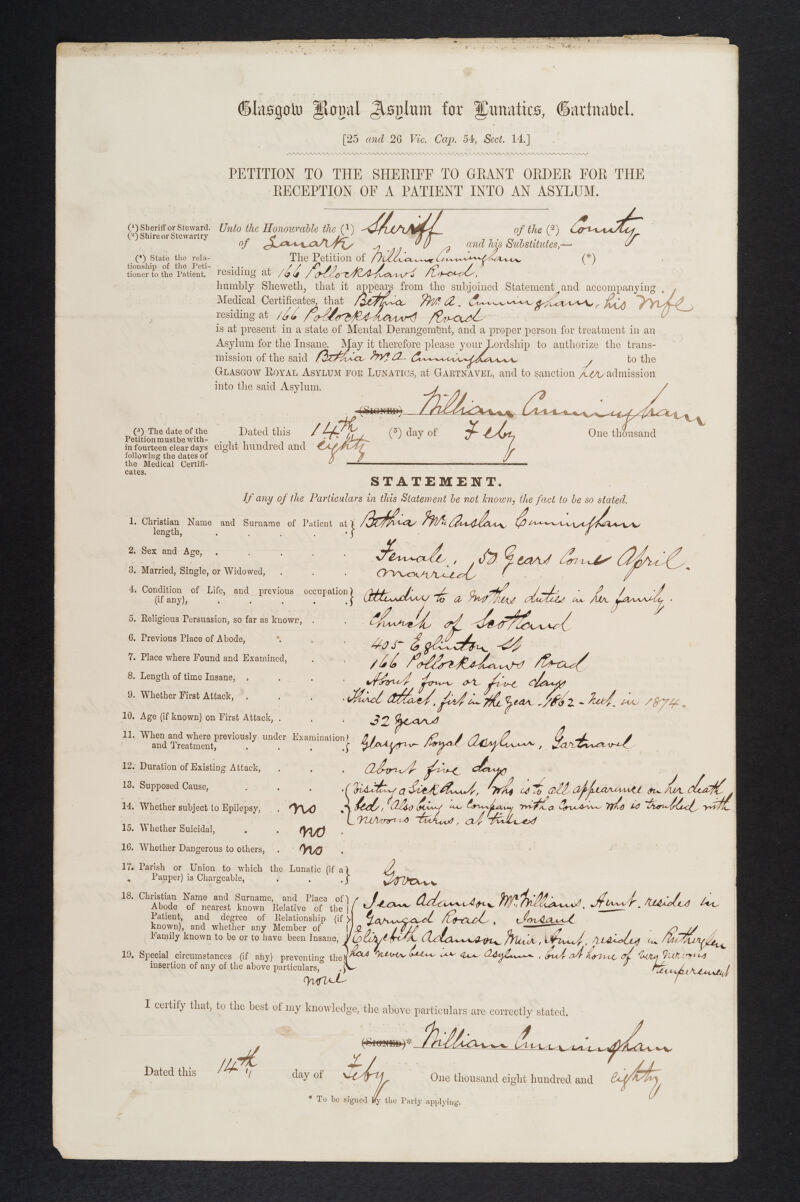 Glasgow Royal Asylum for Lunatics, Gartnabel.
[25 and 26 Vic. Cap. 54, Sect. 14.]
PETITION TO THE SHERIFF TO GRANT ORDER FOR THE
RECEPTION OF A PATIENT INTO AN ASYLUM.
(¹) Sheriff or Steward.
(²) Shire or Stewartry
Unto the Honourable the (¹) Sheriff of the (²) County
of Lanark and his Substitutes,—
(⁴) State the rela-
tionship of the Peti-
tioner to the Patient.
The Petition of William Cunningham (⁴)
residing at 166 Pollockshaws Road.
humbly Sheweth, that it appears from the subjoined Statement and accompanying
Medical Certificates, that Bethia McA. Cunningham, his wife
residing at 166 Pollockshaws Road
is at present in a state of Mental Derangement, and a proper person for treatment in an
Asylum for the Insane. May it therefore please your Lordship to authorize the trans-
mission of the said Bethia McA Cunningham to the
GLASGOW ROYAL ASYLUM FOR LUNATICS, at GARTNAVEL, and to sanction her admission
into the said Asylum.
(SIGNED) William Cunningham
(³) The date of the
Petition must be with-
in fourteen clear days
following the dates of
the Medical Certifi-
cates.
Dated this 14th (³) day of Feby One thousand
eight hundred and eighty
STATEMENT.
If any of the Particulars in this Statement be not known, the fact to be so stated.
1. Christian Name and Surname of Patient at length, Bethia McAuslan Cunningham
2. Sex and Age, Female, 50 Years Come April.
3. Married, Single, or Widowed, married
4. Condition of Life, and previous occupation (if any), Attending to a mothers duties in her family.
5. Religious Persuasion, so far as known, Church of Scotland
6. Previous Place of Abode, 405 Eglinton St
7. Place where Found and Examined, 166 Pollockshaws Road
8. Length of time Insane, About four or five days
9. Whether First Attack, Third attact, first in the year 1862 - Next. in 1874.
10. Age (if known) on First Attack, 32 Years
11. When and where previously under Examination and Treatment, Glasgow Royal Asylum, Gartnavel
12. Duration of Existing Attack, About five days
13. Supposed Cause, Visiting a Sick Aunt, who is to all appearance on her death
bed, Also being in Company with a Cousin who is troubled with
nervous turns, at times
14. Whether subject to Epilepsy, no
15. Whether Suicidal, no
16. Whether Dangerous to others, no
17. Parish or Union to which the Lunatic (if a Pauper) is Chargeable, Govan
18. Christian Name and Surname, and Place of
Abode of nearest known Relative of the
Patient, and degree of Relationship (if
known), and whether any Member of
Family known to be or to have been Insane,
Jean Adamson McWilliams. Aunt. resides in
Garngad Road. Insane
Elizebith Adamson Muir, Aunt. resides in Rutherglen
has never been in an asylum, but at home of very nervous
temperement
19. Special circumstances (if any) preventing the
insertion of any of the above particulars,
none
I certify that, to the best of my knowledge, the above particulars are correctly stated.
(SIGNED)* William Cunningham
Dated this 14th day of Feby One thousand eight hundred and eighty
* To be signed by the Party applying.